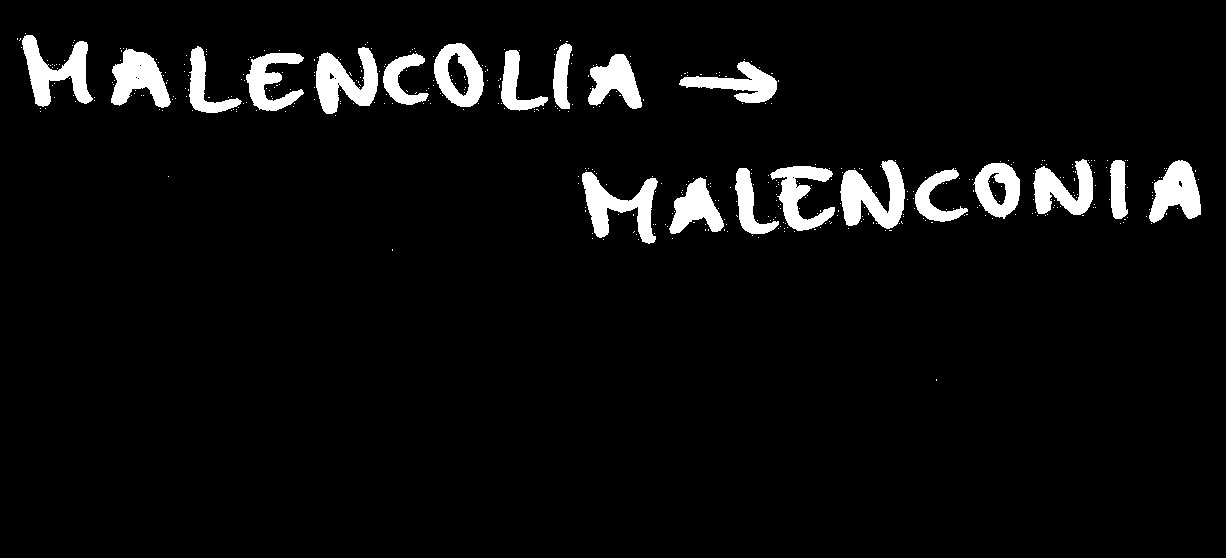 MALENCOLIA →
MALENCONIA